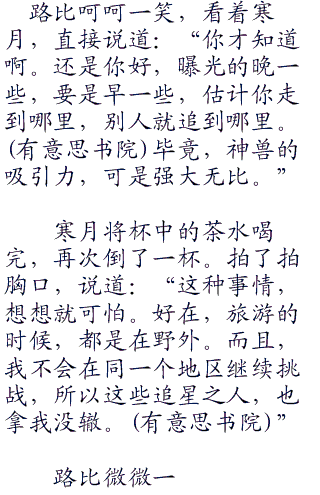 路比呵呵一笑，看着寒
月，直接说道：“你才知道
啊。还是你好，曝光的晚一
些，要是早一些，估计你走
到哪里，别人就追到哪里。
(有意思书院)毕竟，神兽的
吸引力，可是强大无比。”
寒月将杯中的茶水喝
完，再次倒了一杯。拍了拍
胸口，说道：“这种事情，
想想就可怕。好在，旅游的
时候，都是在野外。而且，
我不会在同一个地区继续挑
战，所以这些追星之人，也
拿我没辙。(有意思书院)”
路比微微一